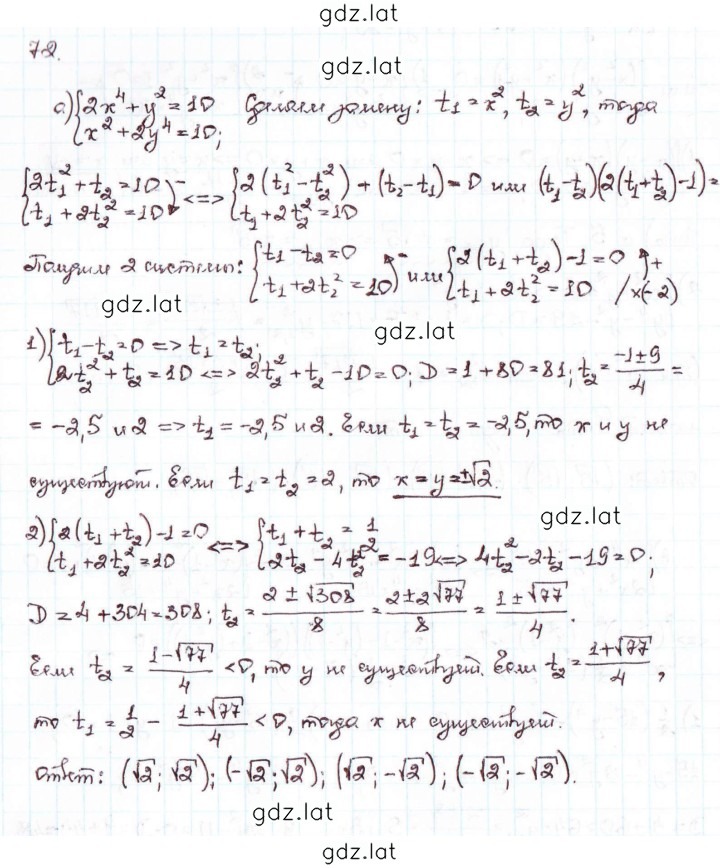 gdz.lat
72.
gdz.lat
а) {2x⁴ + y² = 10 Сделаем замену: t₁ = x², t₂ = y², тогда
{x² + 2y⁴ = 10;
{2t₁² + t₂ = 10 <=> {2(t₁² - t₂²) + (t₂ - t₁) = 0 или (t₁ - t₂)(2(t₁ + t₂) - 1) =
{t₁ + 2t₂² = 10 {t₁ + 2t₂² = 10
Получим 2 системы: {t₁ - t₂ = 0 или {2(t₁ + t₂) - 1 = 0 +
{t₁ + 2t₂² = 10 {t₁ + 2t₂² = 10 /×(-2)
gdz.lat
gdz.lat
1) {t₁ - t₂ = 0 => t₁ = t₂;
{2t₂² + t₂ = 10 <=> 2t₂² + t₂ - 10 = 0; D = 1 + 80 = 81; t₂ = (-1 ± 9)/4 =
= -2,5 и 2 => t₁ = -2,5 и 2. Если t₁ = t₂ = -2,5, то x и y не
существуют. Если t₁ = t₂ = 2, то x = y = ±√2.
gdz.lat
2) {2(t₁ + t₂) - 1 = 0 <=> {t₁ + t₂ = 1/2
{t₁ + 2t₂² = 10 {2t₂ - 4t₂² = -19 <=> 4t₂² - 2t₂ - 19 = 0;
D = 4 + 304 = 308; t₂ = (2 ± √308)/8 = (2 ± 2√77)/8 = (1 ± √77)/4.
Если t₂ = (1 - √77)/4 < 0, то y не существует. Если t₂ = (1 + √77)/4,
то t₁ = 1/2 - (1 + √77)/4 < 0, тогда x не существует.
Ответ: (√2; √2); (-√2; √2); (√2; -√2); (-√2; -√2).
gdz.lat
gdz.lat